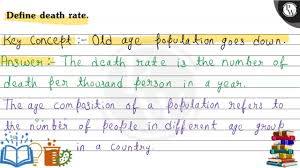 Define death rate.
Key Concept :- Old age population goes down.
Answer :- The death rate is the number of
death per thousand person in a year.
The age composition of a population refers to
the number of people in different age group
in a country.